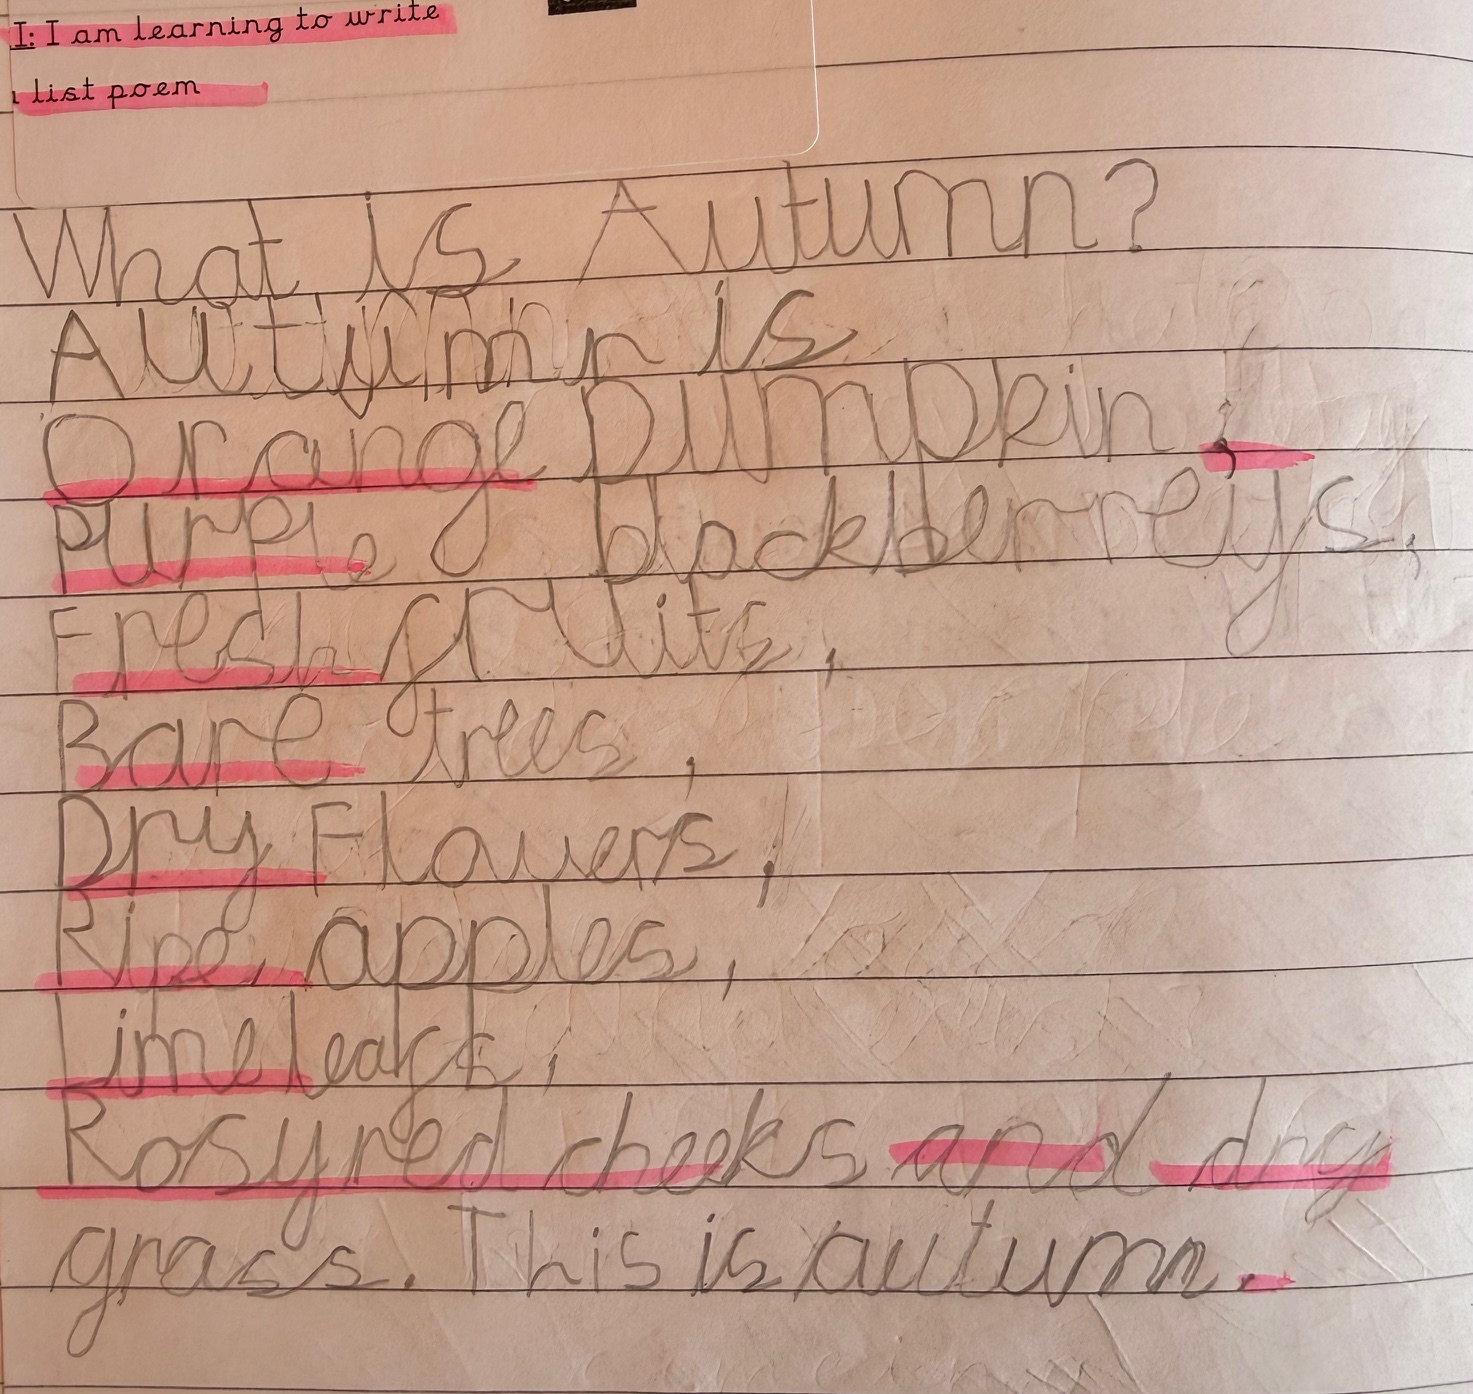 I: I am learning to write
list poem
What is Autumn?
Autumn is
Orange pumpkin,
purple blackberreys,
Fresh fruits,
Bare trees,
Dry Flowers,
Ripe apples,
Lime leafs,
Rosy red cheeks and dry
grass. This is autumn.